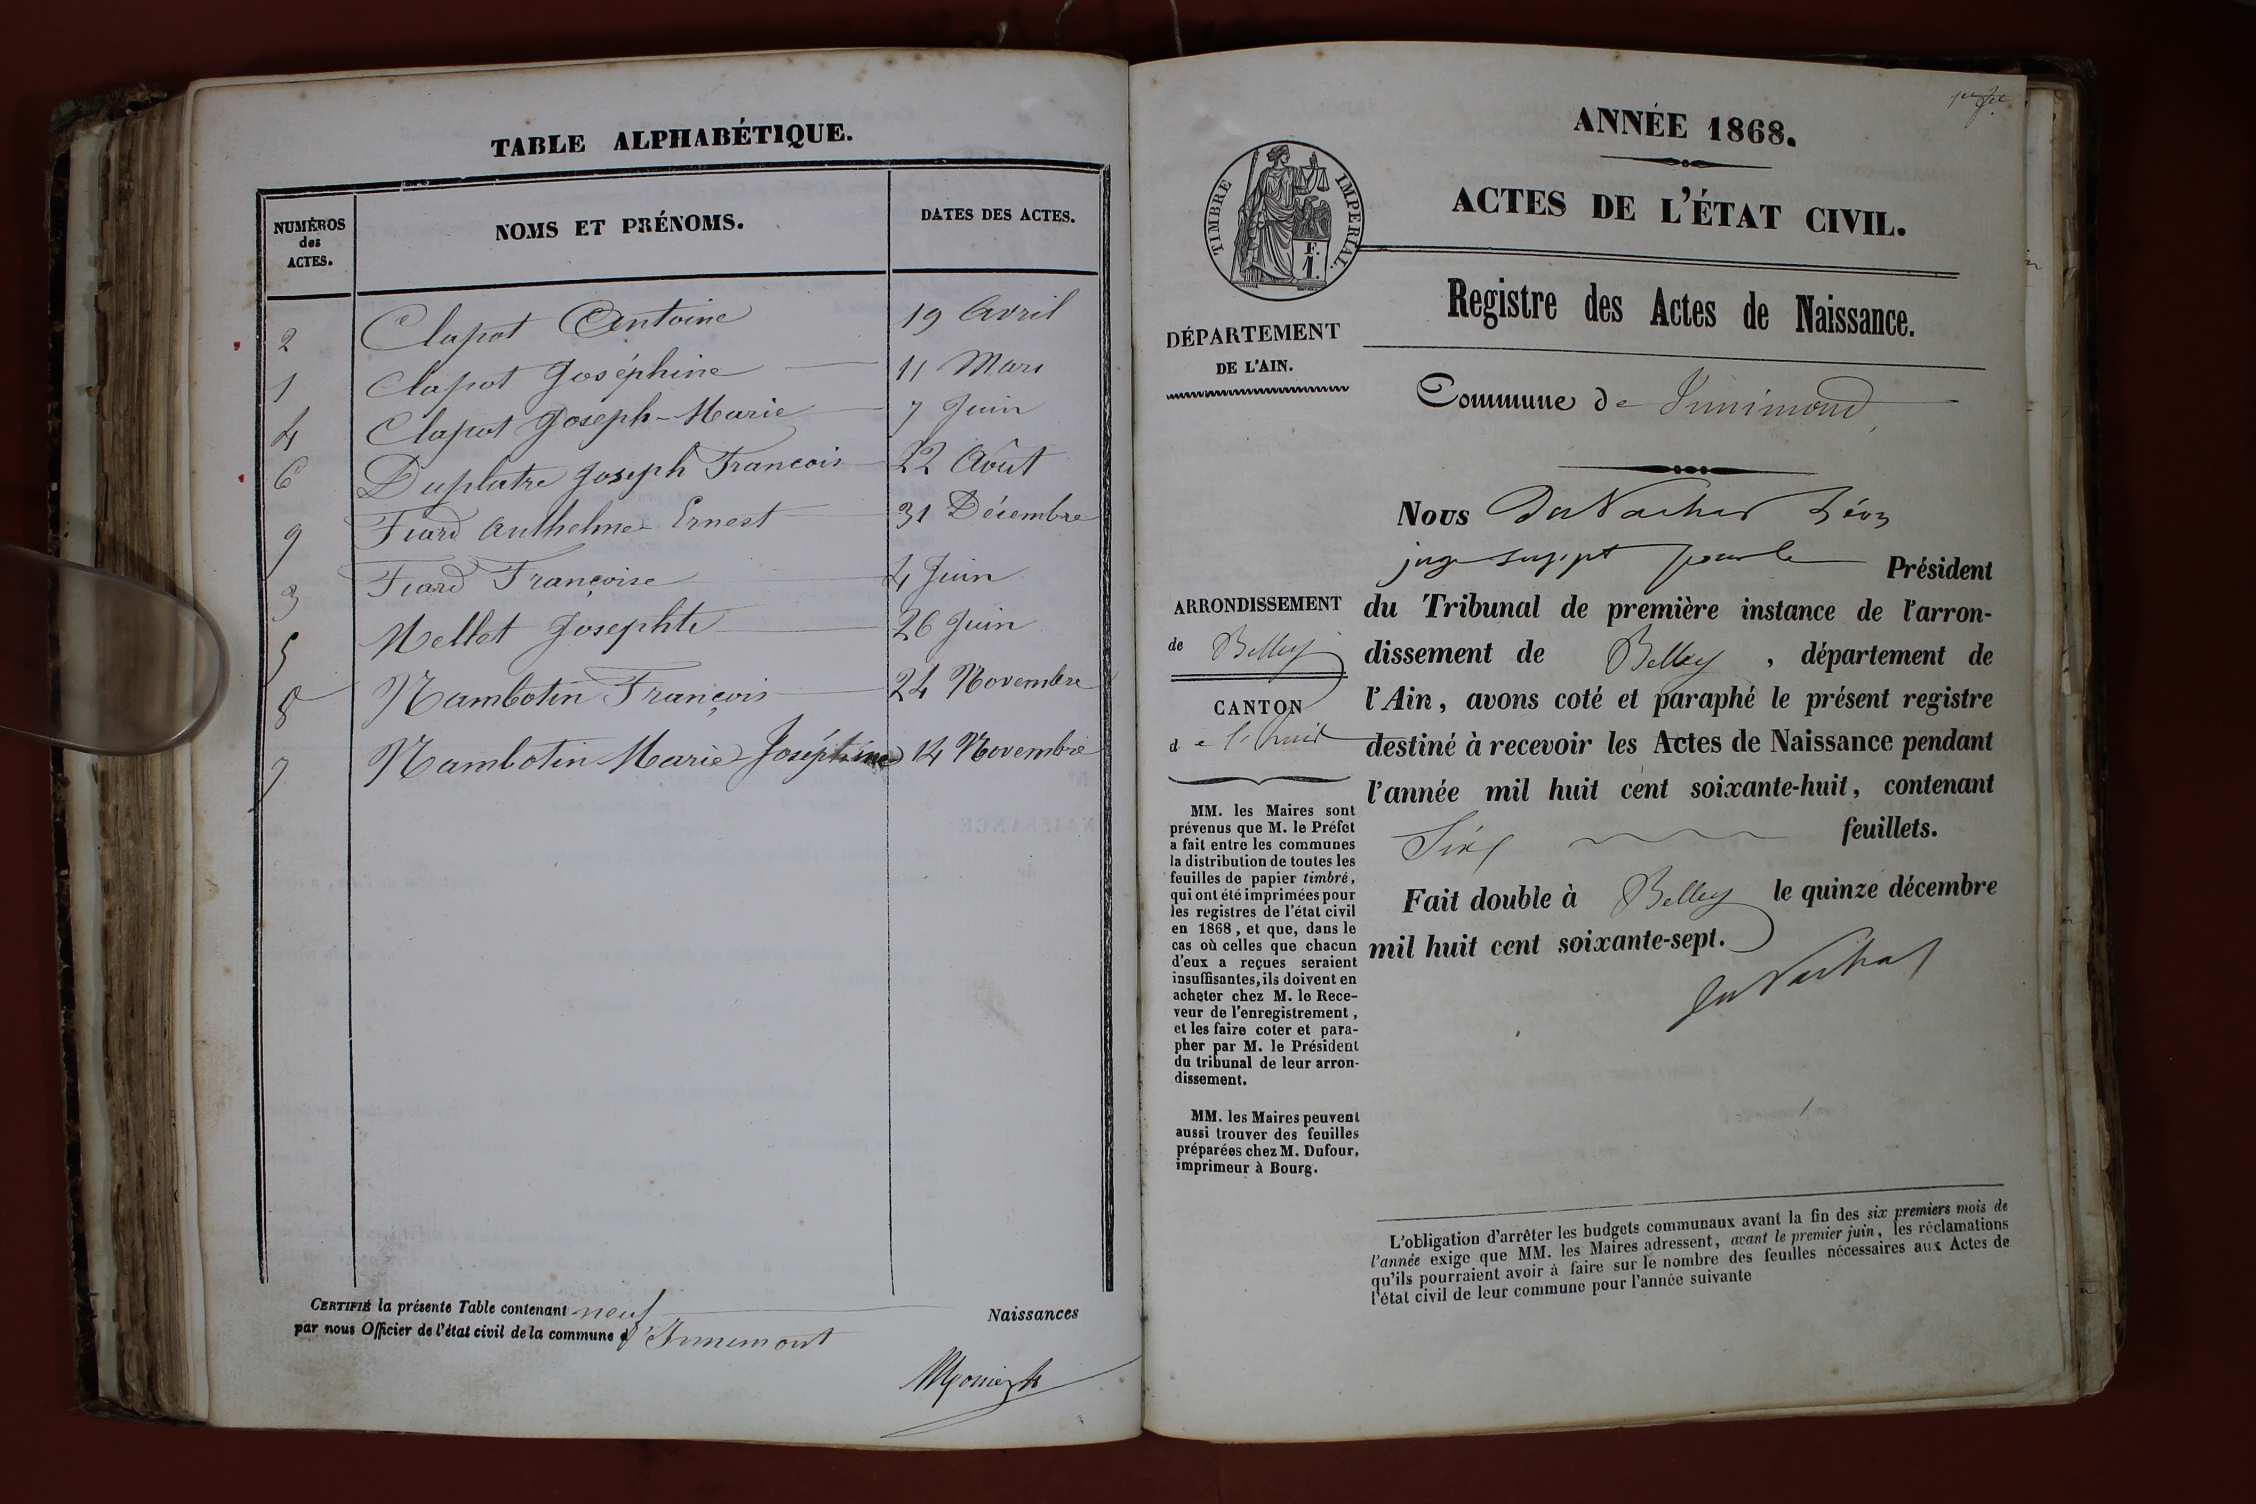 TABLE ALPHABÉTIQUE.
NUMÉROS
des
ACTES.
NOMS ET PRÉNOMS.
DATES DES ACTES.
2 Clapot Antoine 19 Avril
1 Clapot Joséphine 11 Mars
4 Clapot Joseph-Marie 7 Juin
6 Duplatre Joseph Francois 22 Août
9 Fiard Anthelme Ernest 31 Décembre
3 Fiard Françoise 4 Juin
5 Mellet Josephte 26 Juin
8 Nambotin François 24 Novembre
7 Nambotin Marie Joséphine 14 Novembre
CERTIFIÉ la présente Table contenant neuf Naissances
par nous Officier de l'état civil de la commune d'Innimont
ANNÉE 1868.
ACTES DE L'ÉTAT CIVIL.
TIMBRE IMPERIAL.
F.
1.
Registre des Actes de Naissance.
DÉPARTEMENT
DE L'AIN.
Commune de Innimond
Nous Léon
juge suppt pour le Président
du Tribunal de première instance de l'arron-
dissement de Belley, département de
l'Ain, avons coté et paraphé le présent registre
destiné à recevoir les Actes de Naissance pendant
l'année mil huit cent soixante-huit, contenant
Six feuillets.
Fait double à Belley le quinze décembre
mil huit cent soixante-sept.
ARRONDISSEMENT
de Belley
CANTON
de l'huis
MM. les Maires sont
prévenus que M. le Préfet
a fait entre les communes
la distribution de toutes les
feuilles de papier timbré,
qui ont été imprimées pour
les registres de l'état civil
en 1868, et que, dans le
cas où celles que chacun
d'eux a reçues seraient
insuffisantes, ils doivent en
acheter chez M. le Rece-
veur de l'enregistrement,
et les faire coter et para-
pher par M. le Président
du tribunal de leur arron-
dissement.
MM. les Maires peuvent
aussi trouver des feuilles
préparées chez M. Dufour,
imprimeur à Bourg.
L'obligation d'arrêter les budgets communaux avant la fin des six premiers mois de
l'année exige que MM. les Maires adressent, avant le premier juin, les réclamations
qu'ils pourraient avoir à faire sur le nombre des feuilles nécessaires aux Actes de
l'état civil de leur commune pour l'année suivante